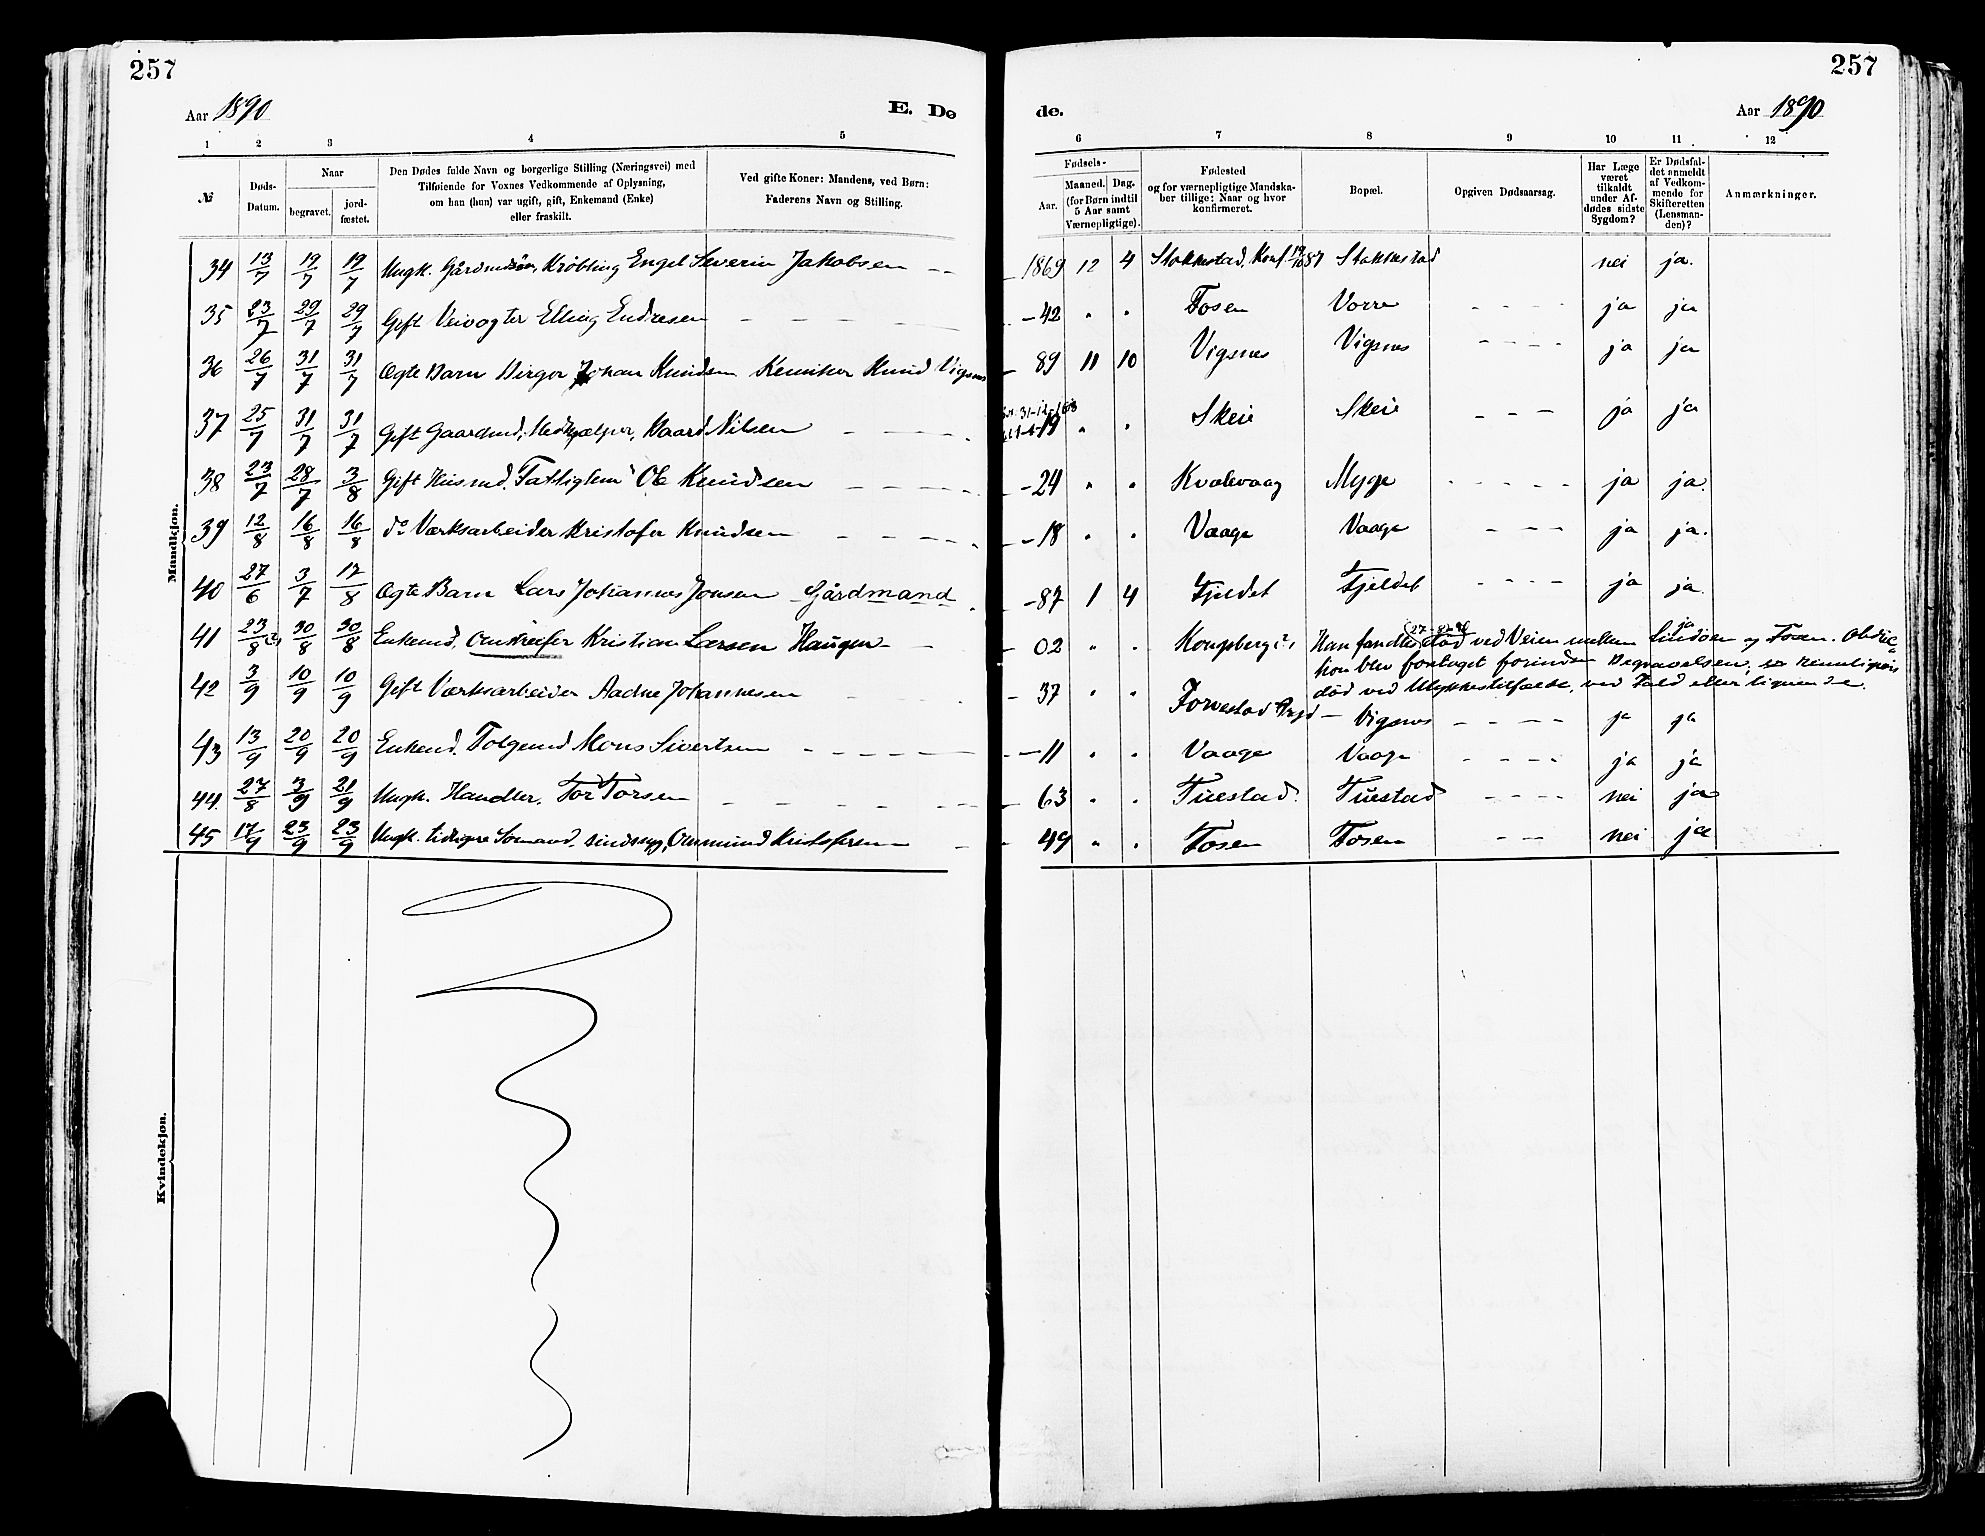 257
257
Aar 1890
E. Dø
de.
Aar 1890
1 2 3 4 5
6 7 8 9 10 11 12
№
Døds-Datum.
Naar
begravet.
jord-fæstet.
Den Dødes fulde Navn og borgerlige Stilling (Næringsvei) med
Tilføiende for Voxnes Vedkommende af Oplysning,
om han (hun) var ugift, gift, Enkemand (Enke)
eller fraskilt.
Ved gifte Koner: Mandens, ved Børn:
Faderens Navn og Stilling.
Fødsels-
Aar.
Maaned. Dag.
(for Børn indtil
5 Aar samt
Værnepligtige).
Fødested
og for værnepligtige Mandska-
ber tillige: Naar og hvor
konfirmeret.
Bopæl.
Opgiven Dødsaarsag.
Har Læge
været
tilkaldt
under Af-
dødes sidste
Sygdom?
Er Dødsfal-
det anmeldt
af Vedkom-
mende for
Skifteretten
(Lensman-
den)?
Anmærkninger.
Mandkjøn.
34 13/7 19/7 19/7 Ungk. Gårdmdsøn, Krøbling Engel Severin Jakobsen 1869 12 4 Stokkestad, Konf. 87 Stokkestad nei ja.
35 23/7 29/7 29/7 Gift Veivogter Elling Endresen - 42 " " Fosen Vorre ja ja
36 26/7 31/7 31/7 Ægte Barn Birger Johan Knudsen Kemiker Knud Vigsnes - 89 11 10 Vigsnes Vigsnes ja ja
37 25/7 31/7 31/7 Gift Gaardmd., Medhjælper, Baard Nilsen 19 " " Skeie Skeie ja ja
38 23/7 28/7 3/8 Gift Husmd. Fattiglem Ole Knudsen - 24 " " Kvalevaag Myge ja ja.
39 12/8 16/8 16/8 do Værksarbeider Kristofer Knudsen - 18 " " Vaage Vaage ja ja.
40 27/6 3/7 17/8 Ægte Barn Lars Johannes Jonsen Gårdmand - 87 1 4 Fjeldet Fjeldet ja ja.
41 23/8 (?) 30/8 30/8 Enkemd. Omstreifer Kristian Larsen Haugen - 02 " " Kongsberg (?) Han fandtes død ved Veien mellem Lindøen og Fosen. Obduc-
ja
tion blev foretaget forinden Begravelsen,
død ved Ulykkestilfælde, ved Fald eller lignende.
42 3/9 10/9 10/9 Gift Værksarbeider Aadne Johannesen - 37 " " Forvestad Vigsnes ja ja
43 13/9 20/9 20/9 Enkemd. Folgemd Mons Sivertsen - 11 " " Vaage Vaage ja ja
44. 27/8 3/9 21/9 Ungk. Handler. Tor Torsen - 63 " " Tuestad. Tuestad nei ja
45 17/9 23/9 23/9 Ungk. tidligere Sømand, sindssyg, Ommund Kristofersen - 49 " " Fosen Fosen nei ja
Kvindekjøn.